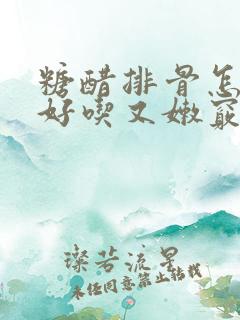 糖醋排骨怎
好喫又嫩窍
璨若流星
未经同意禁止转载